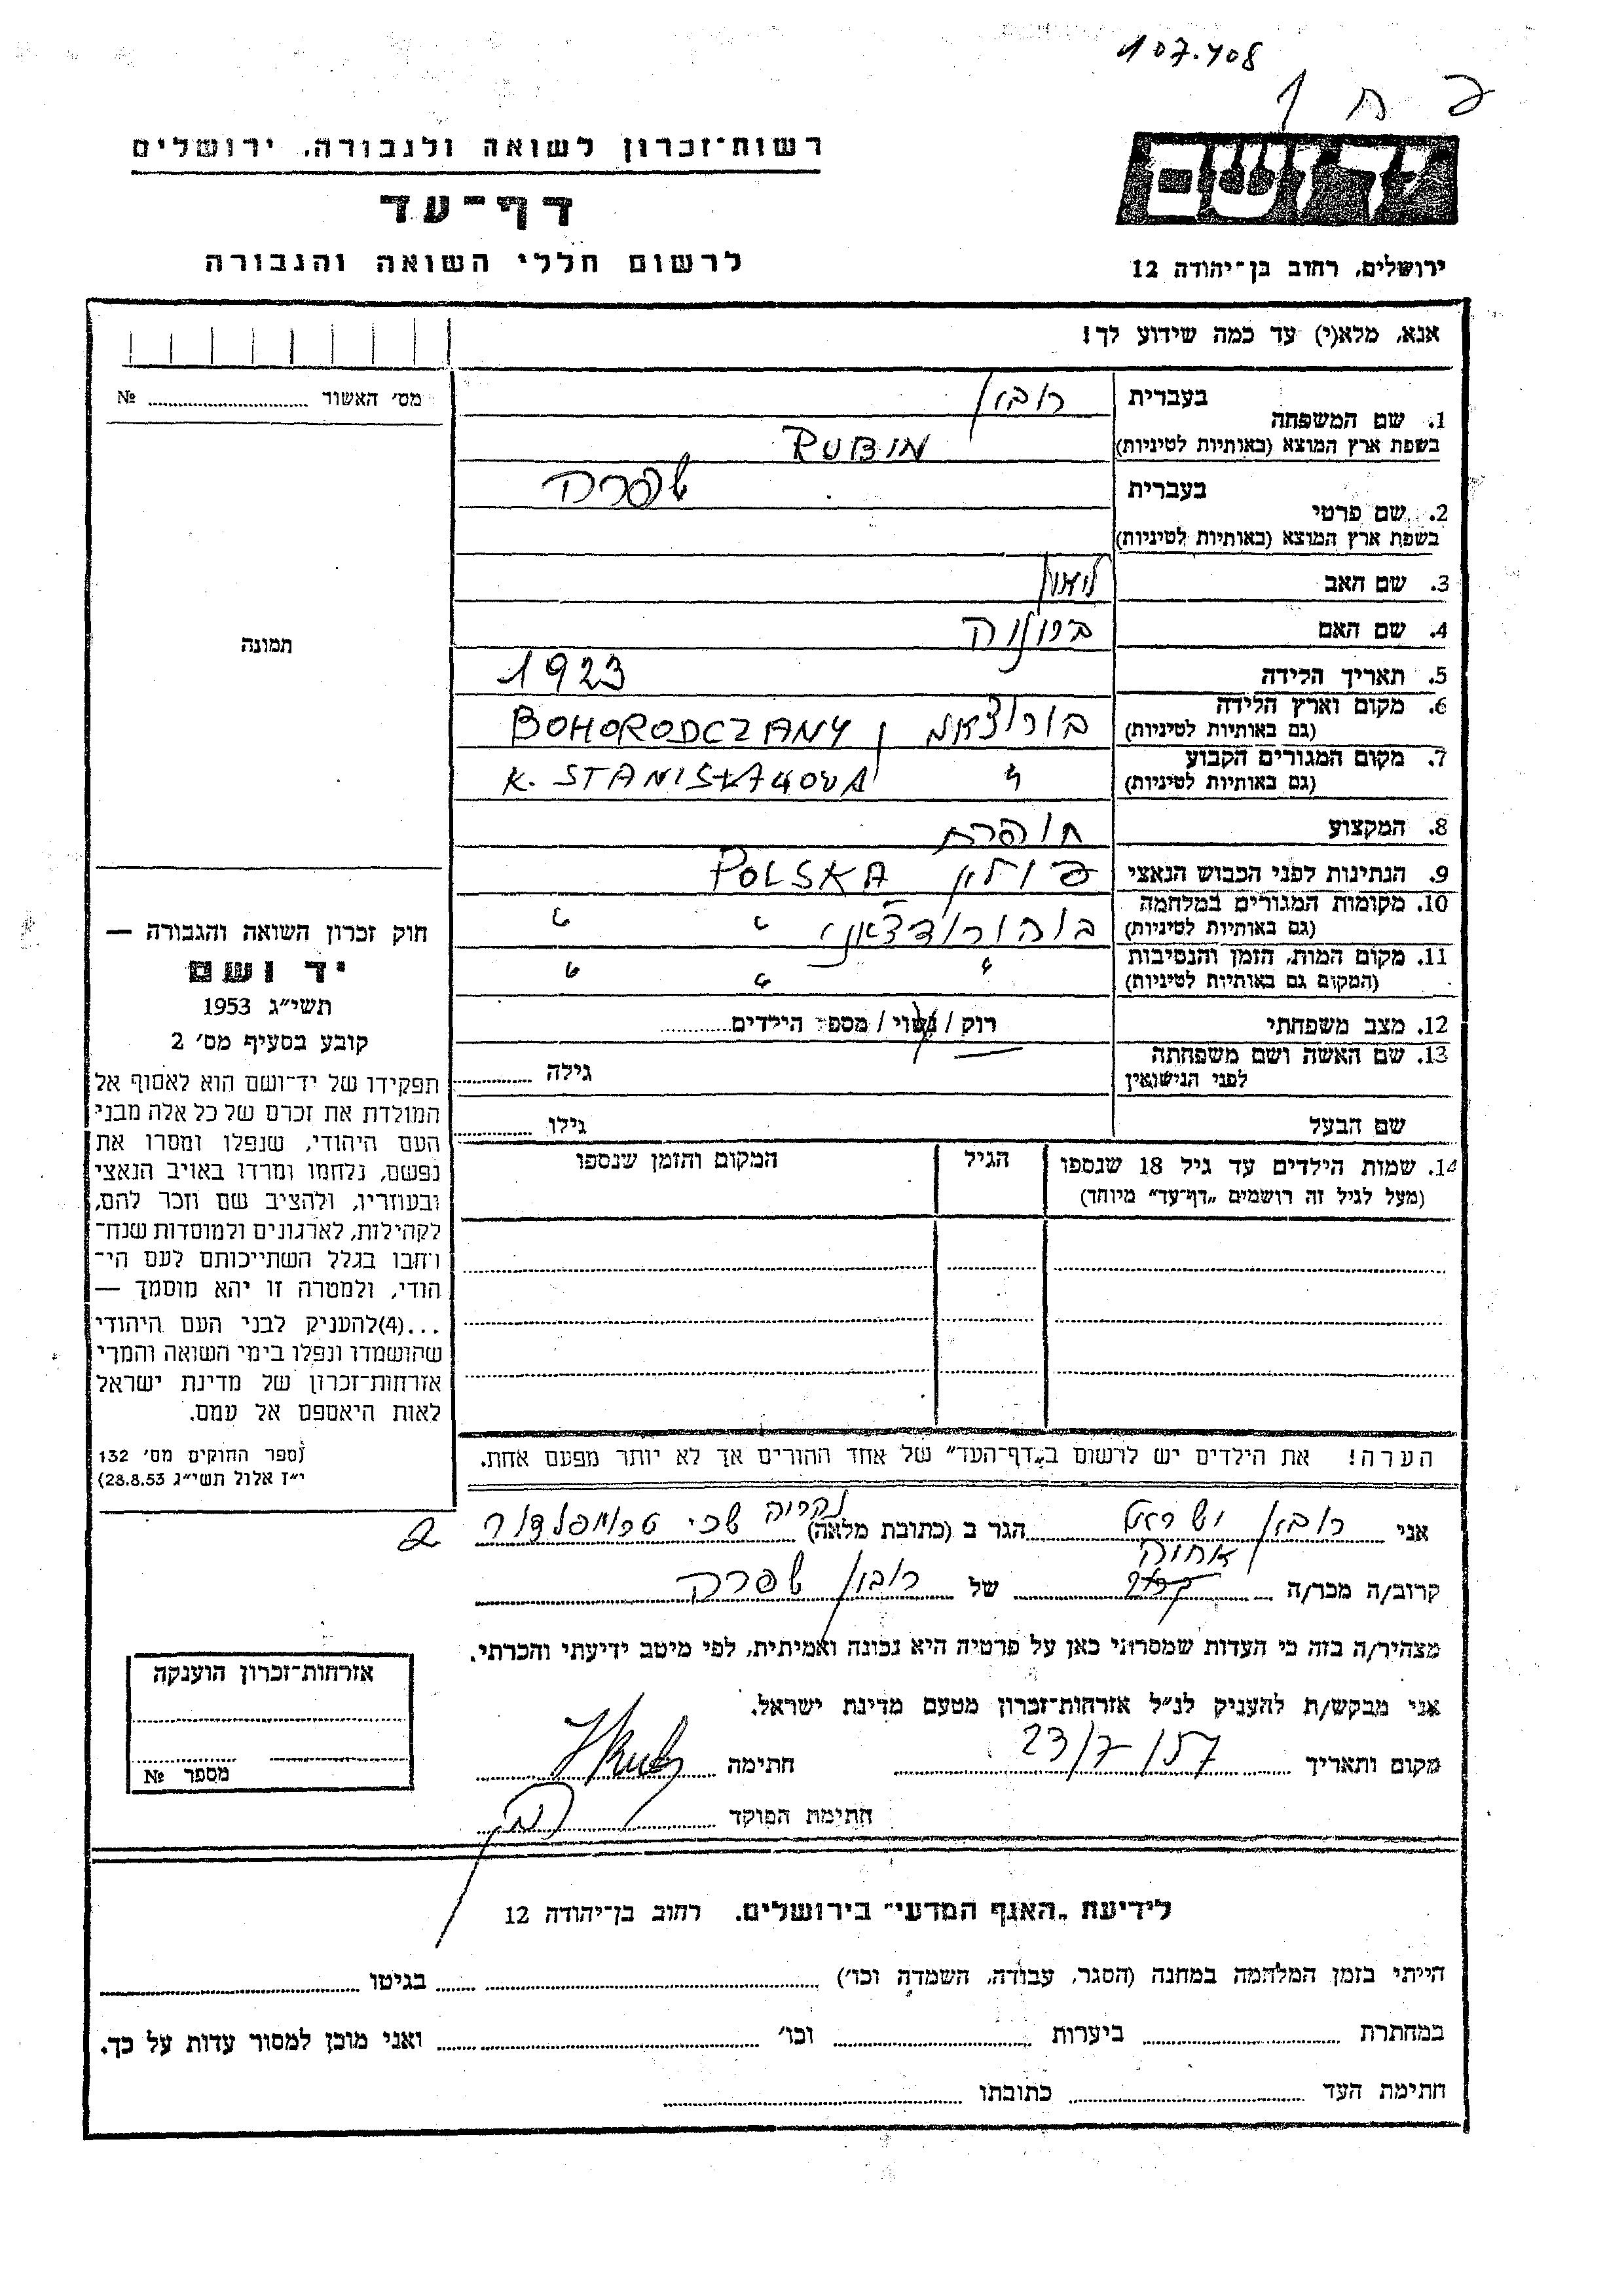 107.408
רשות־זכרון לשואה ולגבורה, ירושלים
דף־עד
לרשום חללי השואה והגבורה
ידושם
ירושלים, רחוב בן־יהודה 12
אנא, מלא(י) עד כמה שידוע לך!
מס׳ האשור № 
1. שם המשפחה בעברית רובין
בשפת ארץ המוצא (באותיות לטיניות) RUBIN
2. שם פרטי בעברית שפרה
בשפת ארץ המוצא (באותיות לטיניות)
3. שם האב
4. שם האם
5. תאריך הלידה 1923
6. מקום וארץ הלידה (גם באותיות לטיניות) BOHORODCZANY
7. מקום המגורים הקבוע (גם באותיות לטיניות) " K. STANISŁAWOWA
8. המקצוע תופרת
9. הנתינות לפני הכבוש הנאצי פולין POLSKA
10. מקומות המגורים במלחמה (גם באותיות לטיניות) בוהורודצאני " "
11. מקום המות, הזמן והנסיבות (המקום גם באותיות לטיניות) " " "
12. מצב משפחתי רוק / נשוי / מספר הילדים
13. שם האשה ושם משפחתה לפני הנישואין גילה
שם הבעל גילו
14. שמות הילדים עד גיל 18 שנספו הגיל המקום והזמן שנספו
(מעל לגיל זה רושמים „דף־עד״ מיוחד)
תמונה
חוק זכרון השואה והגבורה —
יד ושם
תשי״ג 1953
קובע בסעיף מס׳ 2
תפקידו של יד־ושם הוא לאסוף אל
המולדת את זכרם של כל אלה מבני
העם היהודי, שנפלו ומסרו את
נפשם, נלחמו ומרדו באויב הנאצי
ובעוזריו, ולהציב שם וזכר להם,
לקהילות, לארגונים ולמוסדות שנח־
רחבו בגלל השתייכותם לעם הי־
הודי, ולמטרה זו יהא מוסמך —
...(4)להעניק לבני העם היהודי
שהושמדו ונפלו בימי השואה והמרי
אזרחות־זכרון של מדינת ישראל
לאות היאספם אל עמם.
(ספר החוקים מס׳ 132
י״ז אלול תשי״ג 28.8.53)
הערה! את הילדים יש לרשום ב„דף־העד״ של אחד ההורים אך לא יותר מפעם אחת.
אני רובין ישראל הגר ב (כתובת מלאה) שכי טרומפלדור 2
קרוב/ה מכר/ה אחיה של רובין שפרה
מצהיר/ה בזה כי העדות שמסרתי כאן על פרטיה היא נכונה ואמיתית, לפי מיטב ידיעתי והכרתי.
אני מבקש/ת להעניק לנ״ל אזרחות־זכרון מטעם מדינת ישראל.
מקום ותאריך 23/7/57 חתימה
חתימת הפוקד
אזרחות־זכרון הוענקה
מספר №
לידיעת „האגף המדעי״ בירושלים. רחוב בן־יהודה 12
הייתי בזמן המלחמה במחנה (הסגר, עבודה, השמדה וכו׳) בגיטו
במחתרת ביערות וכו׳ ואני מוכן למסור עדות על כך.
חתימת העד כתובתו